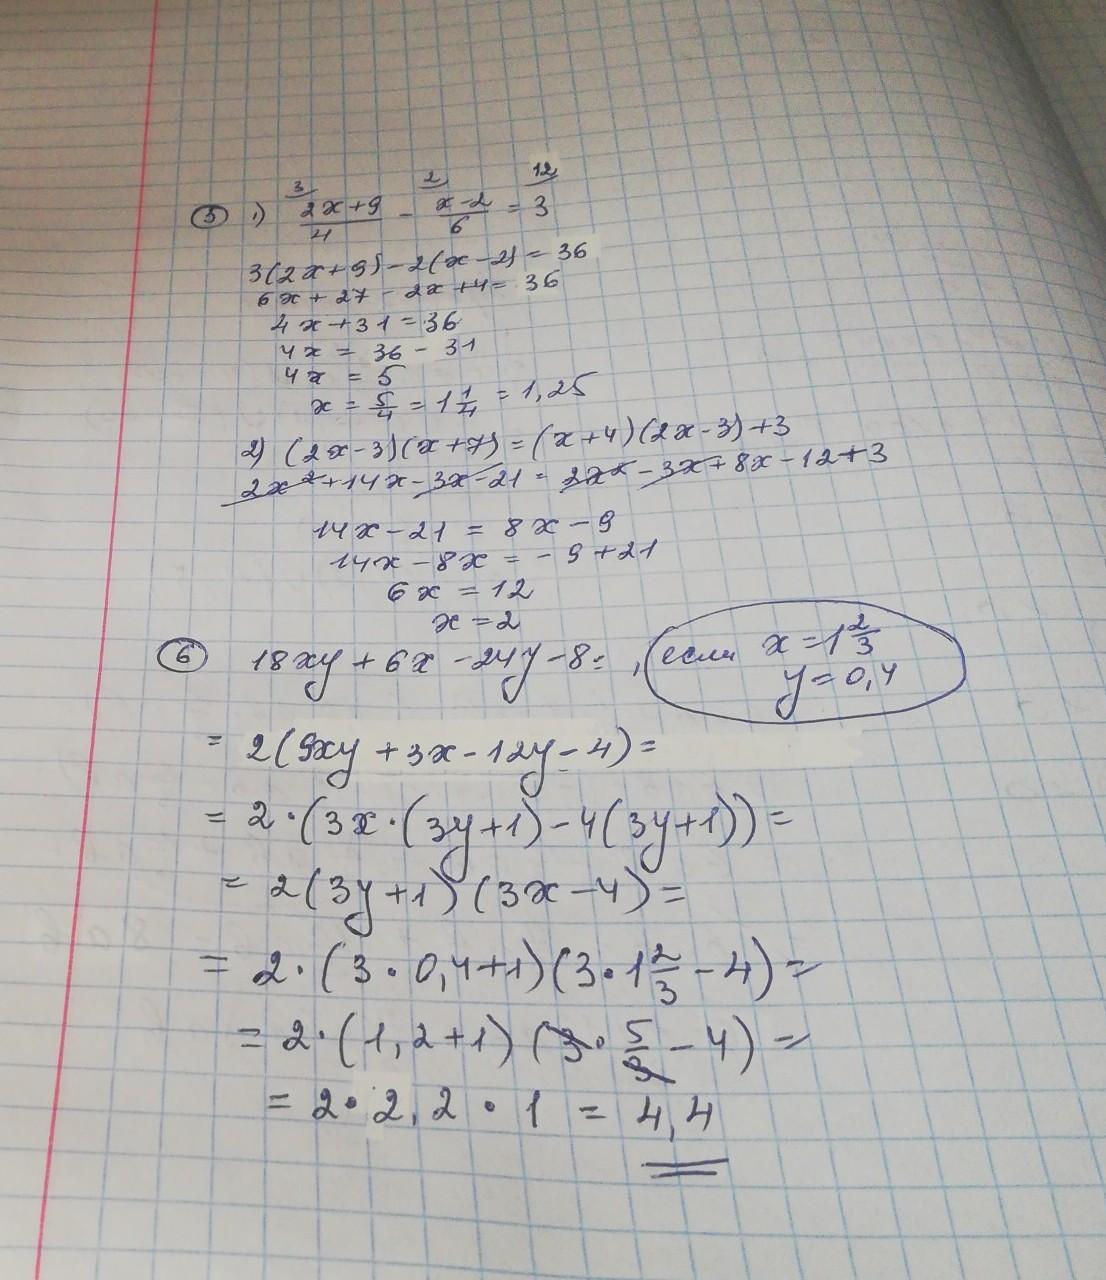 ⑤ 1) ³⁄ (2x+9)/4 - ²⁄ (x-2)/6 = ¹²⁄ 3
3(2x+9)-2(x-2)=36
6x+27-2x+4=36
4x+31=36
4x = 36-31
4x = 5
x = 5/4 = 1 1/4 = 1,25
2) (2x-3)(x+7)=(x+4)(2x-3)+3
2x²+14x-3x-21=2x²-3x+8x-12+3
14x-21 = 8x-9
14x-8x = -9+21
6x = 12
x = 2
⑥ 18xy+6x-24y-8= , если x=1 2/3
y=0,4
= 2(9xy+3x-12y-4)=
= 2·(3x·(3y+1)-4(3y+1))=
= 2(3y+1)(3x-4)=
= 2·(3·0,4+1)(3·1 2/3-4)=
= 2·(1,2+1)(3·5/3-4)=
= 2·2,2·1 = 4,4